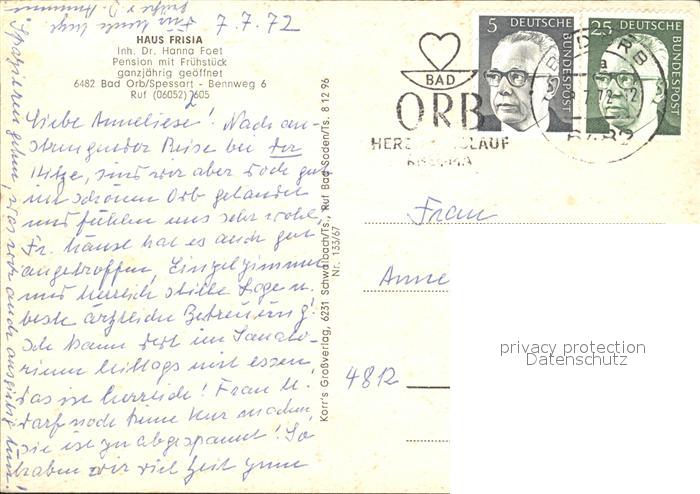 7.7.72
HAUS FRISIA
Inh. Dr. Hanna Foet
Pension mit Frühstück
ganzjährig geöffnet
6482 Bad Orb/Spessart - Bennweg 6
Ruf (06052) 2605
Liebe Anneliese! Nach an-
strengender Reise bei der
Hitze, sind wir aber doch gut
im schönen Orb gelandet
und fühlen uns sehr wohl,
Fr. hat es auch gut
angetroffen, Einzelzimmer
und herrlich stille Lage u.
beste ärztliche Betreuung!
Ich kann dort im Sanato-
rium Mittags mit essen,
das ist herrlich! Frau H.
darf noch keine Kur machen,
sie ist zu abgespannt! So
haben wir viel Zeit zum
Spazieren gehen, was wir auch ausgiebig tun!
Korr's Großverlag, 6231 Schwalbach/Ts., Ruf Bad Soden/Ts. 8 12 96
Nr. 133/67
BAD
ORB
HERZ KREISLAUF
5 DEUTSCHE BUNDESPOST
25 DEUTSCHE BUNDESPOST
BAD ORB
a
7.72-12
6482
Frau
Anne
4812
privacy protection
Datenschutz